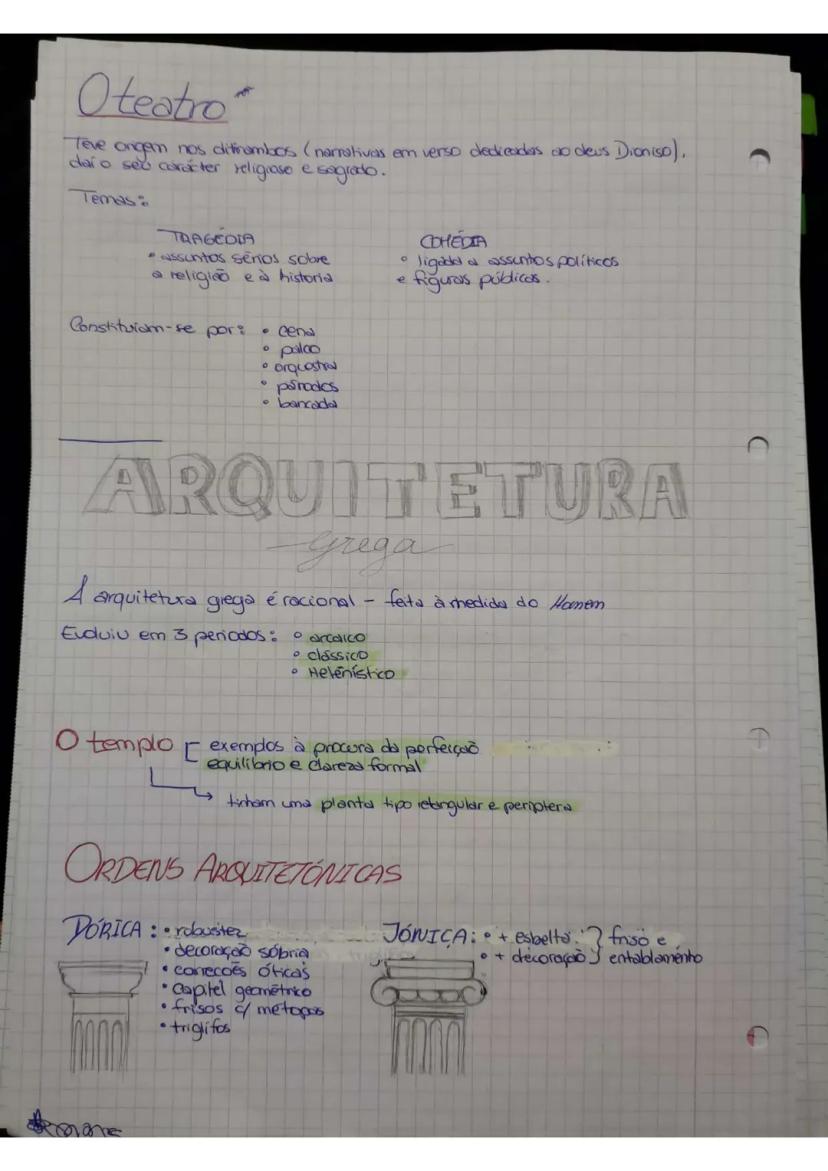 O teatro*
Teve origem nos ditirambos (narrativas em verso dedicadas ao deus Dioniso),
daí o seu carácter religioso e sagrado.
Temas:
TRAGÉDIA
• assuntos sérios sobre
a religião e à historia
COMÉDIA
• ligada a assuntos políticos
e figuras públicas.
Constituiam-se por: • cena
• palco
• orquestra
• párodos
• bancada
ARQUITETURA
grega
A arquitetura grega é racional - feita à medida do Homem
Evoluiu em 3 periodos: • arcaico
• clássico
• Helenístico
O templo [ exemplos à procura da perfeição
equilibrio e clareza formal
tinham uma planta tipo retangular e periptera
ORDENS ARQUITETÓNICAS
DÓRICA: • robustez
• decoração sóbria
• correcões óticas
• capitel geométrico
• frisos c/ métopas
• triglifos
JÓNICA: • + esbelta. } friso e
• + decoração } entablamento